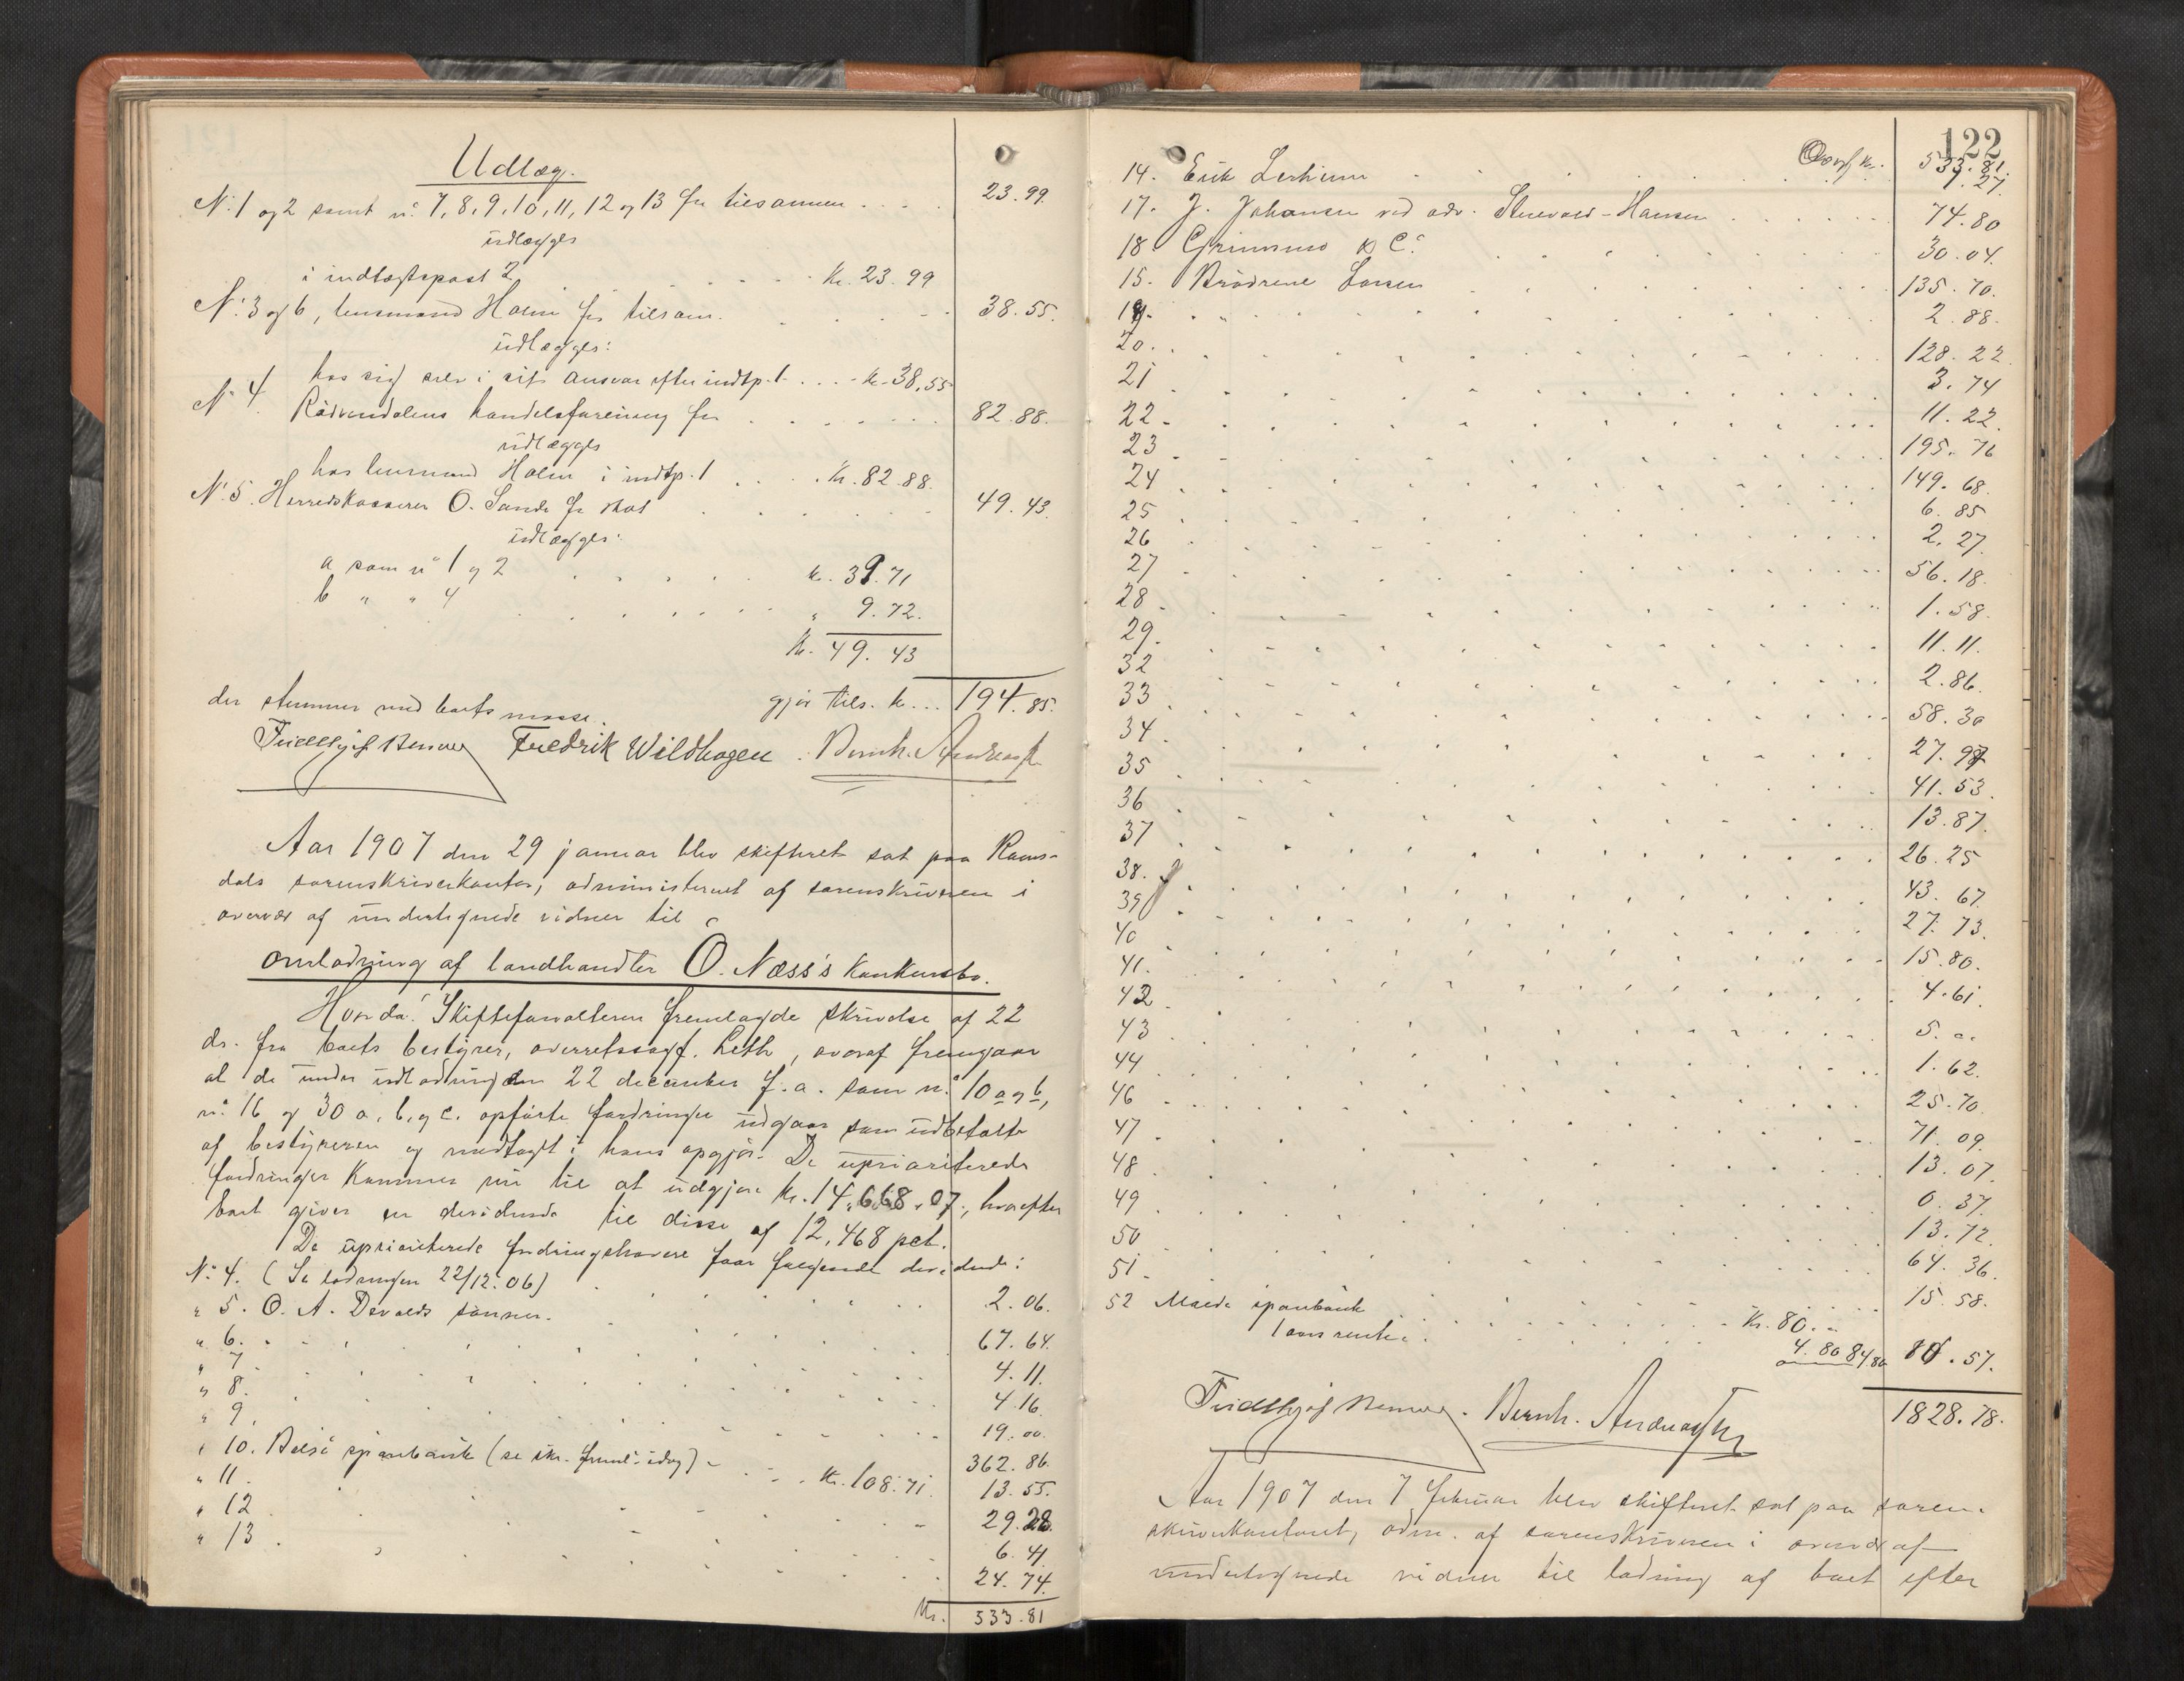 Udlæg.
No. 1 og 2 samt no. 7, 8, 9, 10, 11, 12 og 13 for tilsammen . . . . 23.99
udlægges
i indtægtspost 2 . . . . kr. 23.99
No. 3 og 6, lensmand Holm for tilsam. . . . 38.55.
udlægges:
hos sig selv i sit ansvar efter indtp. 1 . . . . kr. 38.55
No. 4. Rødvendalens handelsforening for . . . . 82.88.
udlægges
hos lensmand Holm i indtp. 1 . . . . kr. 82.88.
No. 5. Herredskasserer O. Sande for skat . . . . 49.43.
udlægges:
a som no 1 og 2 . . . . kr. 39.71
b " " 4 . . . . " 9.72.
Kr. 49.43
der stemmer med boets masse. gjør tils. kr. . . 194.85.
Fredrik Wildhagen. Bernh.
Aar 1907 den 29 januar blev skifteret sat paa Roms-
dals sorenskriverkontor, administreret af sorenskriveren i
overvær af undertegnede vidner til
omlodning af landhandler O. Næss's konkursbo.
Hvorda: Skifteforvalteren fremlagde skrivelse af 22
ds. fra boets bestyrer, overretssagf. Leth, hvoraf fremgaar
at de under udlodningen den 22 december f. a. som no. 10 a og b,
no. 16 og 30 a, b, og c. opførte fordringer udgaar som udbetalte
af bestyreren og medtaget i hans opgjør. De uprioriterede
fordringer kommer nu til at udgjøre kr. 14,668.07, hvorefter
boet giver en dividende til disse af 12,468 pct.
De uprioriterede fordringshavere faar følgende dividende:
No. 4. (Se lodningen 22/12.06) . . . . 2.06.
" 5. O. A. Devolds sønner. . . . . 67.64.
" 6. . . . . 4.11.
" 7 . . . . 4.16.
" 8. . . . . 19.00.
" 9. . . . . 362.86.
" 10. Bolsø sparebank (se skr. freml. idag) . . . kr. 108.71. 13.55.
" 11. . . . . 29.28.
" 12 . . . . 6.41
" 13. . . . . 24.74.
Kr. 533.81
122
Overf. kr. 533.81.
14. Erik Lerheim . . . . 7.27.
17. J. Johansen ved adv. . . . . 74.80
18. & Co. . . . . 30.04.
15. Brødrene Larsen . . . . 135.70.
19. . . . . 2.88.
20. . . . . 128.22.
21 . . . . 3.74
22 . . . . 11.22.
23 . . . . 195.76
24 . . . . 149.68.
25 . . . . 6.85
26 . . . . 2.27.
27 . . . . 56.18.
28 . . . . 1.58.
29. . . . . 11.11.
32 . . . . 2.86.
33 . . . . 58.30
34 . . . . 27.97
35 . . . . 41.53.
36 . . . . 13.87.
37 . . . . 26.25
38. . . . . 43.67.
39 . . . . 27.73.
40 . . . . 15.80.
41. . . . . 4.61.
42 . . . . 5. ..
43 . . . . 1.62.
44 . . . . 25.70.
46 . . . . 71.09.
47 . . . . 13.07.
48 . . . . 0.37.
49 . . . . 13.72.
50 . . . . 64.36.
51. . . . . 15.58.
52 Molde sparebank . . . . Kr. 80. -
1 aars rente . . . . 4.80 84.80 .57.
1828.78.
Bernh.
Aar 1907 den 7 februar blev skifteret sat paa soren-
skriverkontoret, adm. af sorenskriveren i overvær af
undertegnede vidner til lodning af boet efter